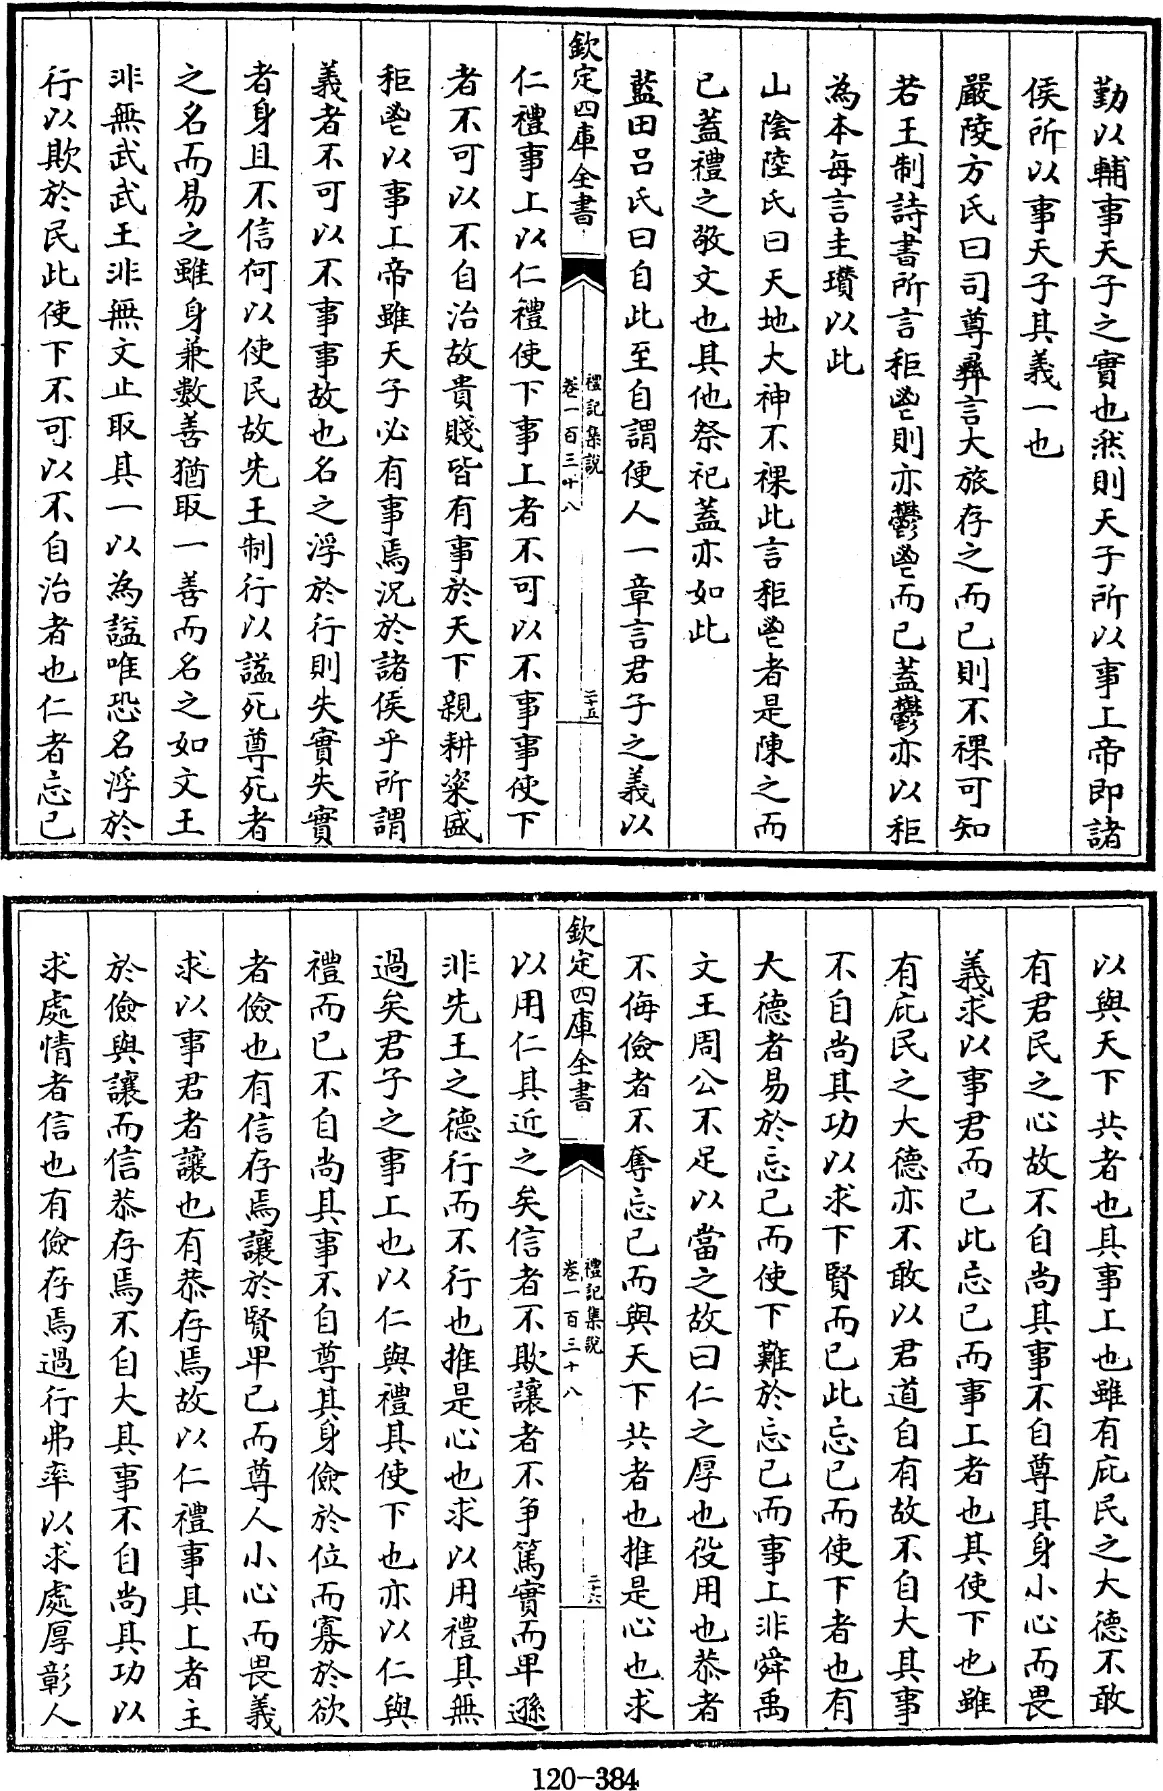 勤以輔事天子之實也然則天子所以事上帝即諸
侯所以事天子其義一也
嚴陵方氏曰司尊彝言大旅存之而已則不祼可知
若王制詩書所言秬鬯則亦鬱鬯而已蓋鬱亦以秬
為本每言圭瓚以此
山陰陸氏曰天地大神不祼此言秬鬯者是陳之而
已蓋禮之敬文也其他祭祀蓋亦如此
藍田吕氏曰自此至自謂便人一章言君子之義以
欽定四庫全書
禮記集說
卷一百三十八
二十五
仁禮事上以仁禮使下事上者不可以不事事使下
者不可以不自治故貴賤皆有事於天下親耕粢盛
秬鬯以事上帝雖天子必有事焉況於諸侯乎所謂
義者不可以不事事故也名之浮於行則失實失實
者身且不信何以使民故先王制行以諡死尊死者
之名而易之雖身兼數善猶取一善而名之如文王
非無武武王非無文止取其一以為諡唯恐名浮於
行以欺於民此使下不可以不自治者也仁者忘已
以與天下共者也其事上也雖有庇民之大德不敢
有君民之心故不自尚其事不自尊其身小心而畏
義求以事君而已此忘已而事上者也其使下也雖
有庇民之大德亦不敢以君道自有故不自大其事
不自尚其功以求下賢而已此忘已而使下者也有
大德者易於忘己而使下難於忘己而事上非舜禹
文王周公不足以當之故曰仁之厚也役用也恭者
不侮儉者不奪忘己而與天下共者也推是心也求
欽定四庫全書
禮記集說
卷一百三十八
二十六
以用仁其近之矣信者不欺讓者不爭篤實而卑遜
非先王之德行而不行也推是心也求以用禮其無
過矣君子之事上也以仁與禮其使下也亦以仁與
禮而已不自尚其事不自尊其身儉於位而寡於欲
者儉也有信存焉讓於賢卑已而尊人小心而畏義
求以事君者讓也有恭存焉故以仁禮事其上者主
於儉與讓而信恭存焉不自大其事不自尚其功以
求處情者信也有儉存焉過行弗率以求處厚彰人
120-384